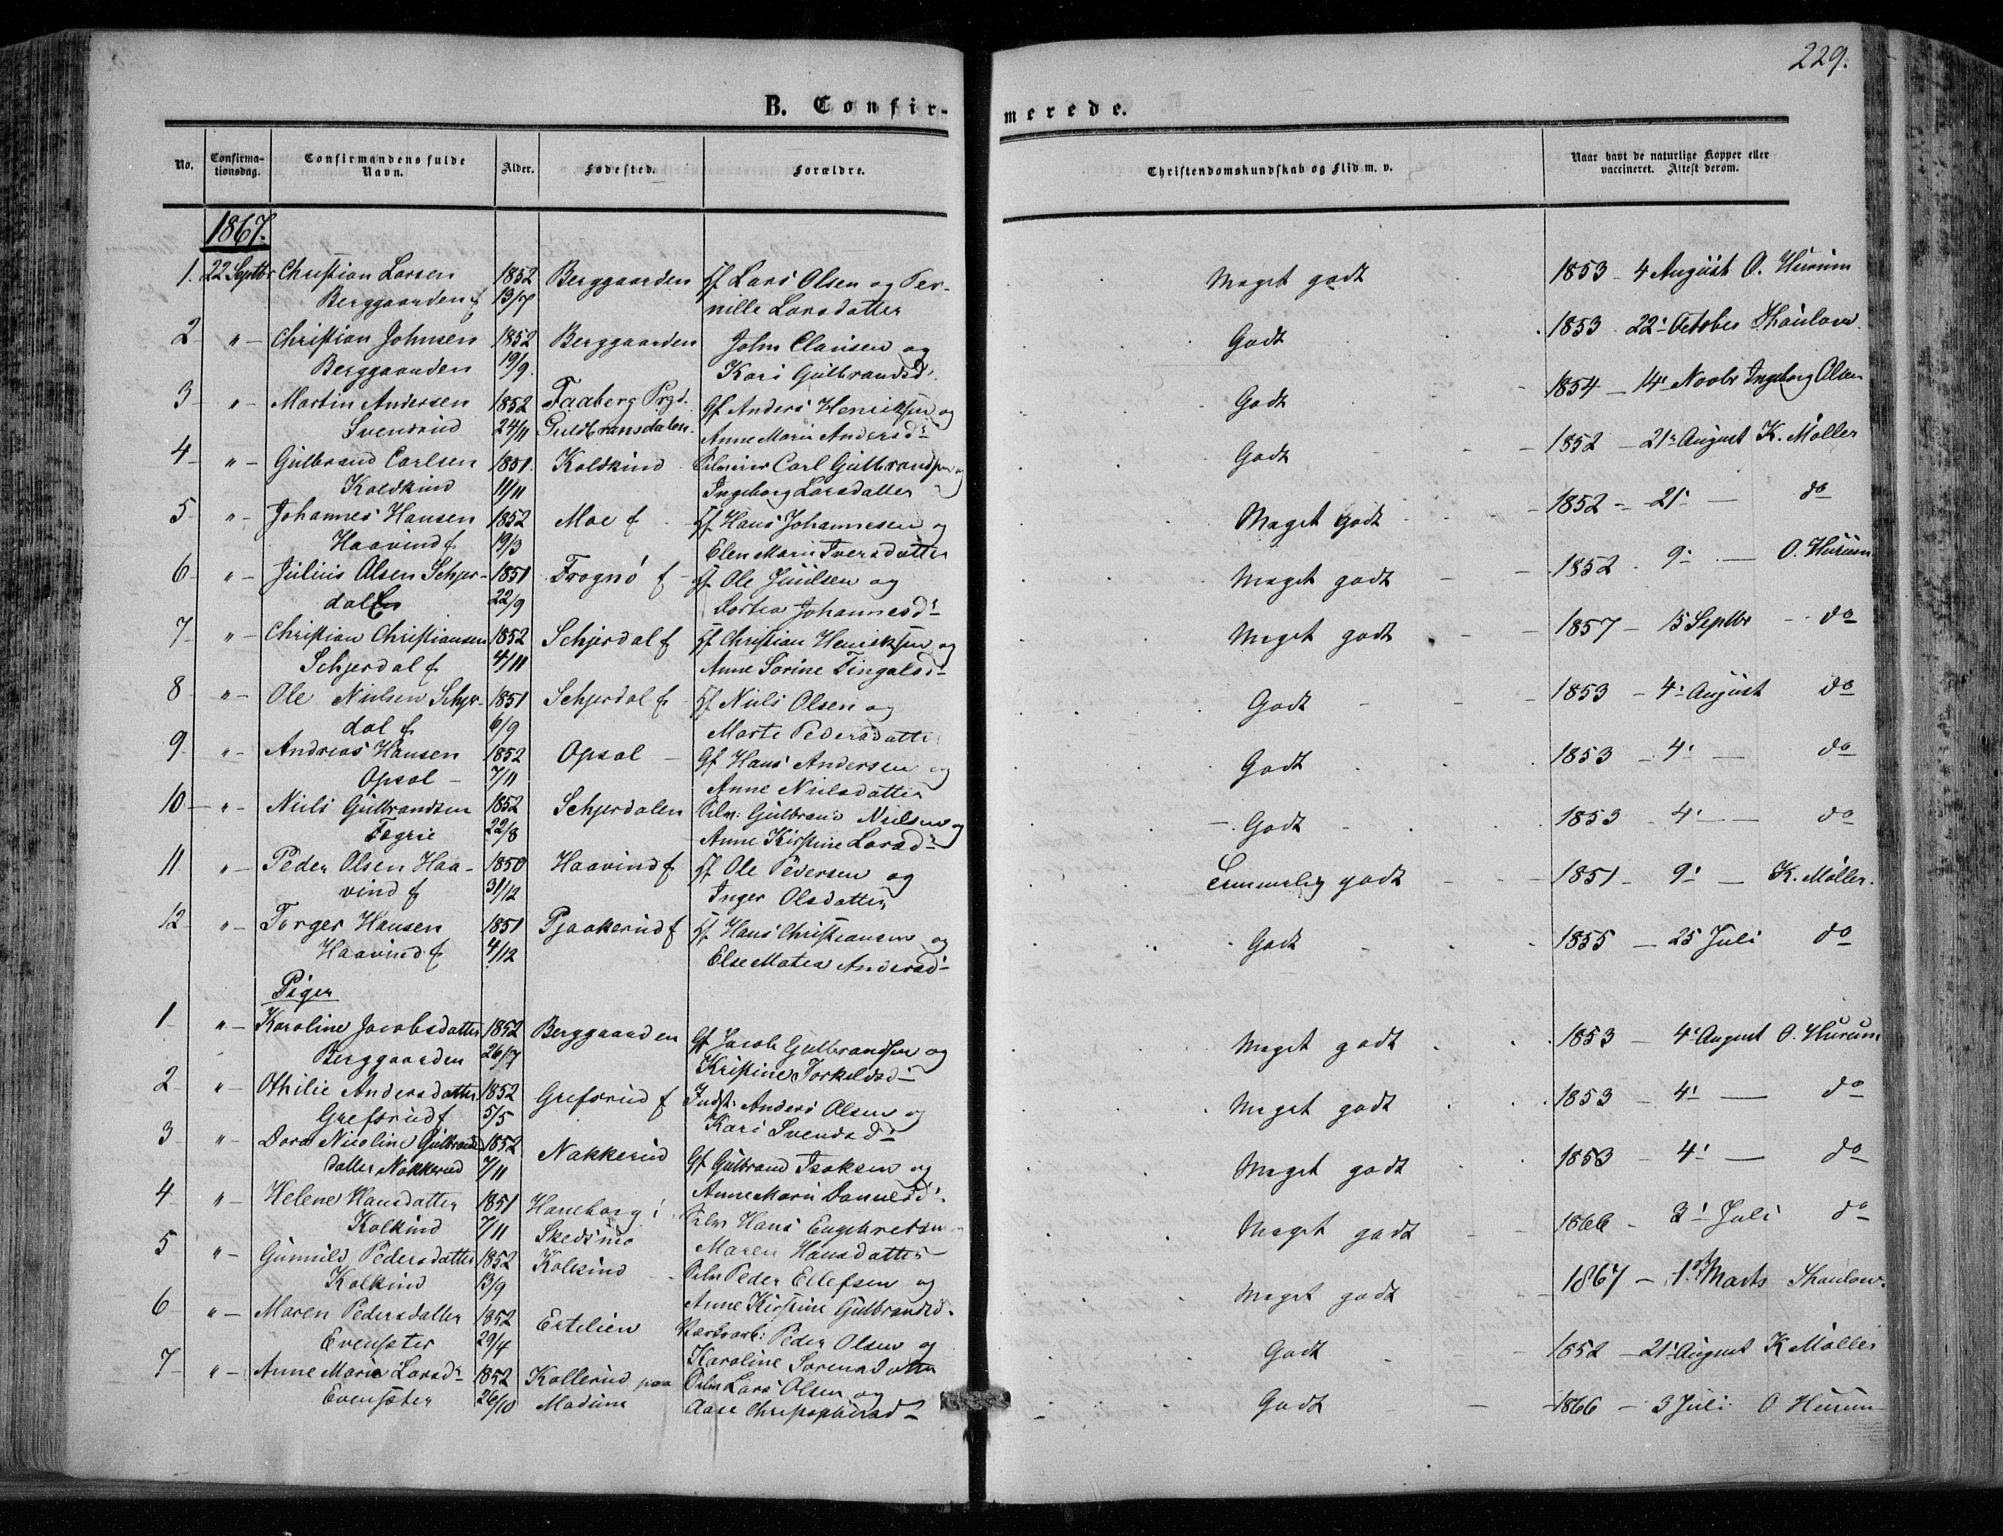 229.
B. Confir-
merede.
No. Confirma-tionsdag. Confirmandens fulde Navn. Alder. Fødested. Forældre. Christendomskundskab og Flid m. v. Naar havt de naturlige Kopper eller vaccineret. Attest derom.
1867.
1. 22 Septbr Christian Larsen 1852 Berggaarden Gf. Lars Olsen og Per- Meget godt 1853 - 4 August O. Hurum
Berggaarden f 13/7 nille Larsdatter
2 " Christian Johnsen 1852 Berggaarden John Clausen og Godt 1853 22' October Thaulow
Berggaarden 19/9. Kari Gulbrandsd.
3 " Martin Andersen 1852 Faaberg Prgd. Gf Anders Henriksen og Godt 1854 - 14' Novbr Ingeborg Olsen
Svendsrud 24/11 Guldbransdalen. Anne Marie Andersd:
4 " Gulbrand Carlsen 1851. Koldkind Carl Gulbrandsen og Godt 1852 - 21' August K. Møller
Koldkind 11/11 Ingeborg Larsdatter
5 " Johannes Hansen 1852 Moe f Gf. Hans Johannesen og Meget godt 1852 - 21' — do
Haavind f. 19/3 Elen Marie Iversdatter
6 " Julius Olsen Schjer- 1851 Frognø f Gf. Ole Juulsen og Meget godt 1852 . 9' — O. Hurum
dalen 22/9 Dortea Johannesd:
7 " Christian Christiansen 1852 Schjerdal f Gf. Christian Henriksen og Meget godt 1857 - 15 Septbr do
Schjerdal f. 4/11 Anne Sorine Fingalsd:
8 " Ole Nielsen Schjer- 1851 Schjerdal f. Gf. Niels Olsen og Godt 1853 - 4' August do
dal f 6/9 Marte Pedersdatter
9 " Andreas Hansen 1852 Opsal Gf Hans Andersen og Godt 1853 - 4' do
Opsal 7/11 Anne Nielsdatter
10 " Niels Gulbrandsen 1852 Schjerdalen Selv: Gulbrand Nielsen og Godt 1853 - 4' — do
Fagrie 22/8 Anne Kirstine Larsd:
11 " Peder Olsen Haa- 1850 Haavind f. Gf. Ole Pedersen og Temmelig godt 1851 - 9' — K. Møller.
vind f 31/12 Inger Olsdatter
12 " Torger Hansen 1851 Pjaakerud f Gf. Hans Christiansen og Godt 1855 - 25 Juli do
Haavind f 4/12 Else Matea Andersd:
Piger
1 " Karoline Jacobsdatter 1852 Berggaarden Gf Jacob Gulbrandsen og Meget godt 1853 - 4' August O. Hurum
Berggaarden 26/7 Kristine Torkeldsd:
2 " Othilie Andersdatter 1852 Grefsrud f Indst: Anders Olsen og Meget godt 1853 - 4' — do
Grefsrud f 5/5 Kari Svendsd:
3 " Dora Nicoline Gulbrands 1852 Nakkerud Gf Gulbrand Isaksen og Meget godt 1853 - 4' — do
datter Nakkerud 7/11 Anne Marie Danielsd:
4 " Helene Hansdatter 1851 Haneborg i Selv Hans Engebretsen Meget godt 1866 - 3' Juli do
Kolkind 7/11 Skedsmo Maren Hansdatter
5 " Gunnild Pedersdatter 1852 Kolkind Selv Peder Ellefsen og Meget godt 1867 - 1' Marts Thaulow.
Kolkind 13/9 Anne Kirstine Gulbrandsd.
6 " Maren Pedersdatter 1852 Estelien Peder Olsen og Godt 1852 - 21' August K Møller
Evensæter 29/4 Karoline Sorensdatter
7 " Anne Marie Larsd: 1852 Kollerud paa Selv Lars Olsen og Godt 1866 - 3 Juli O Hurum
Evensæter 26/10 Modum Aase Christophersd: